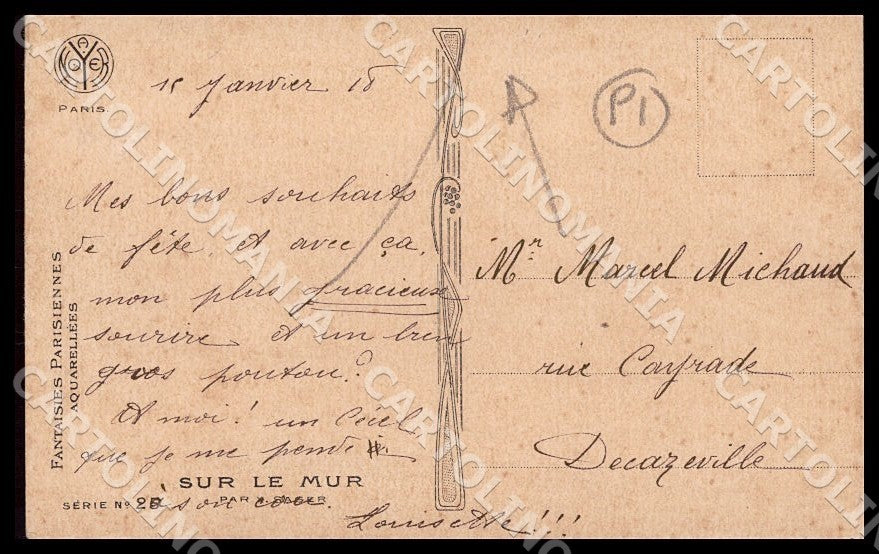 PARIS.
15 Janvier 18
Mes bons souhaits
de fête. Et avec ça,
mon plus gracieux
sourire. Et un bien
gros poutou?
Et moi!
que je me
à son cou.
Louisette!!!
FANTAISIES PARISIENNES
AQUARELLÉES
SUR LE MUR
SÉRIE No 25
PAR X. SAGER
P1
Mr. Marcel Michaud
rue Cayrade
Decazeville
CARTOLINOMANIA